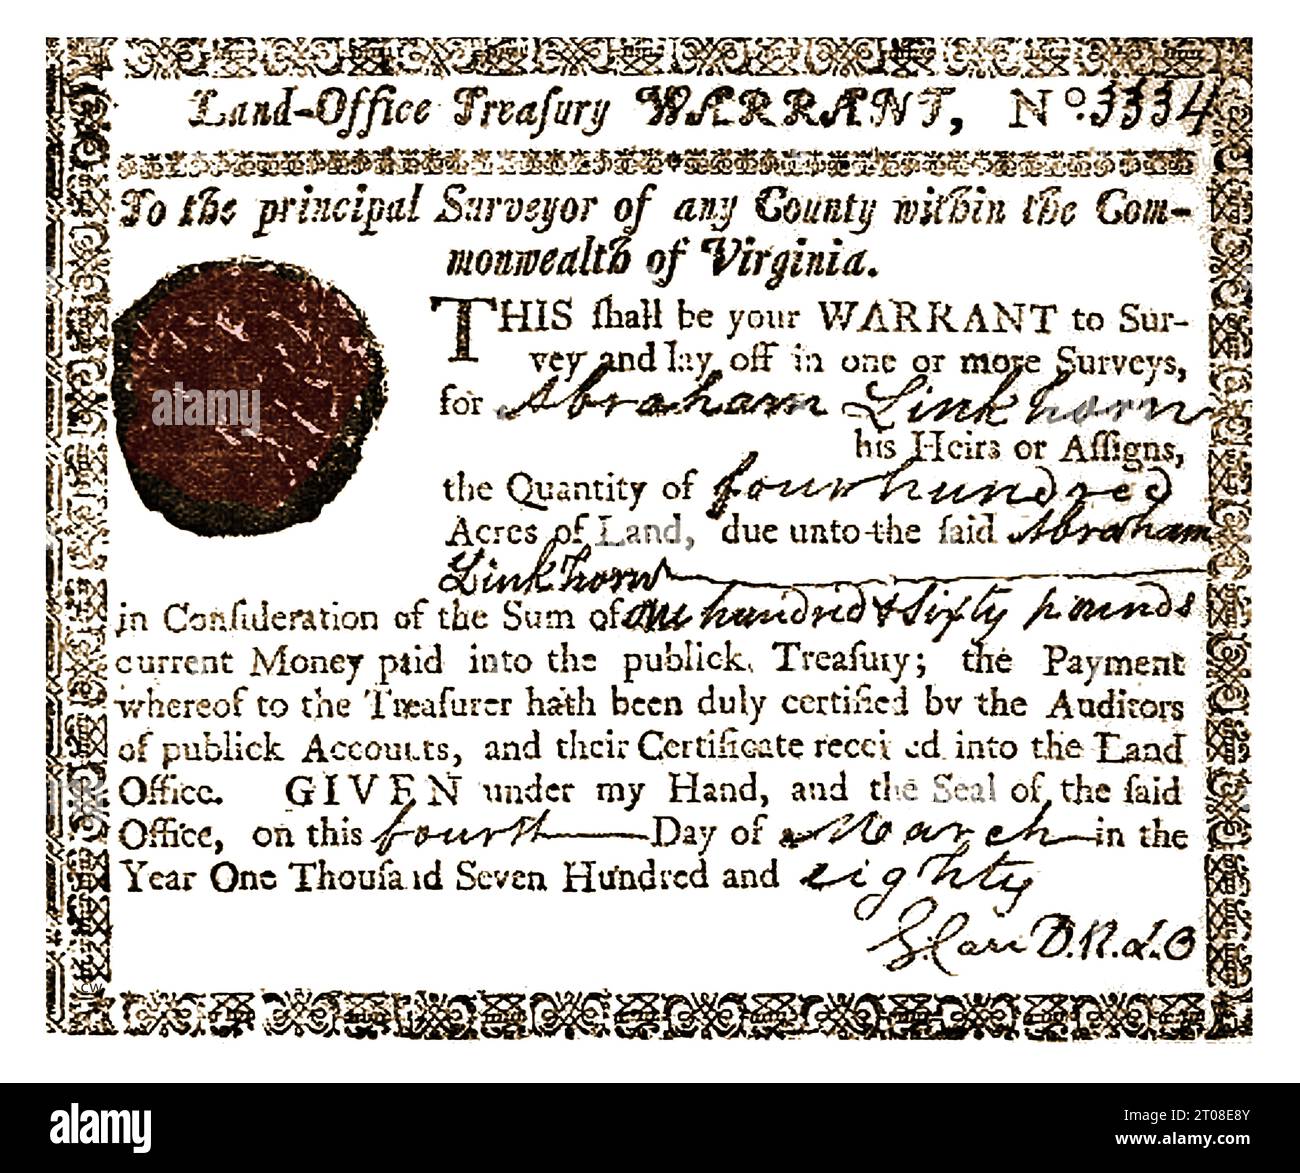 Land-Office Treaſury WARRANT, No. 3334
To the principal Surveyor of any County within the Com-
monwealth of Virginia.
THIS ſhall be your WARRANT to Sur-
vey and lay off in one or more Surveys,
for Abraham Linkhorn
his Heirs or Aſſigns,
the Quantity of four hundred
Acres of Land, due unto the ſaid Abraham
Linkhorn
in Conſideration of the Sum of one hundred & sixty pounds
current Money paid into the publick Treaſury; the Payment
whereof to the Treaſurer hath been duly certified by the Auditors
of publick Accounts, and their Certificate received into the Land
Office. GIVEN under my Hand, and the Seal of the ſaid
Office, on this fourth Day of March in the
Year One Thouſand Seven Hundred and eighty
S. Carr D.R.L.O
CW
alamy
Image ID: 2T08E8Y
www.alamy.com